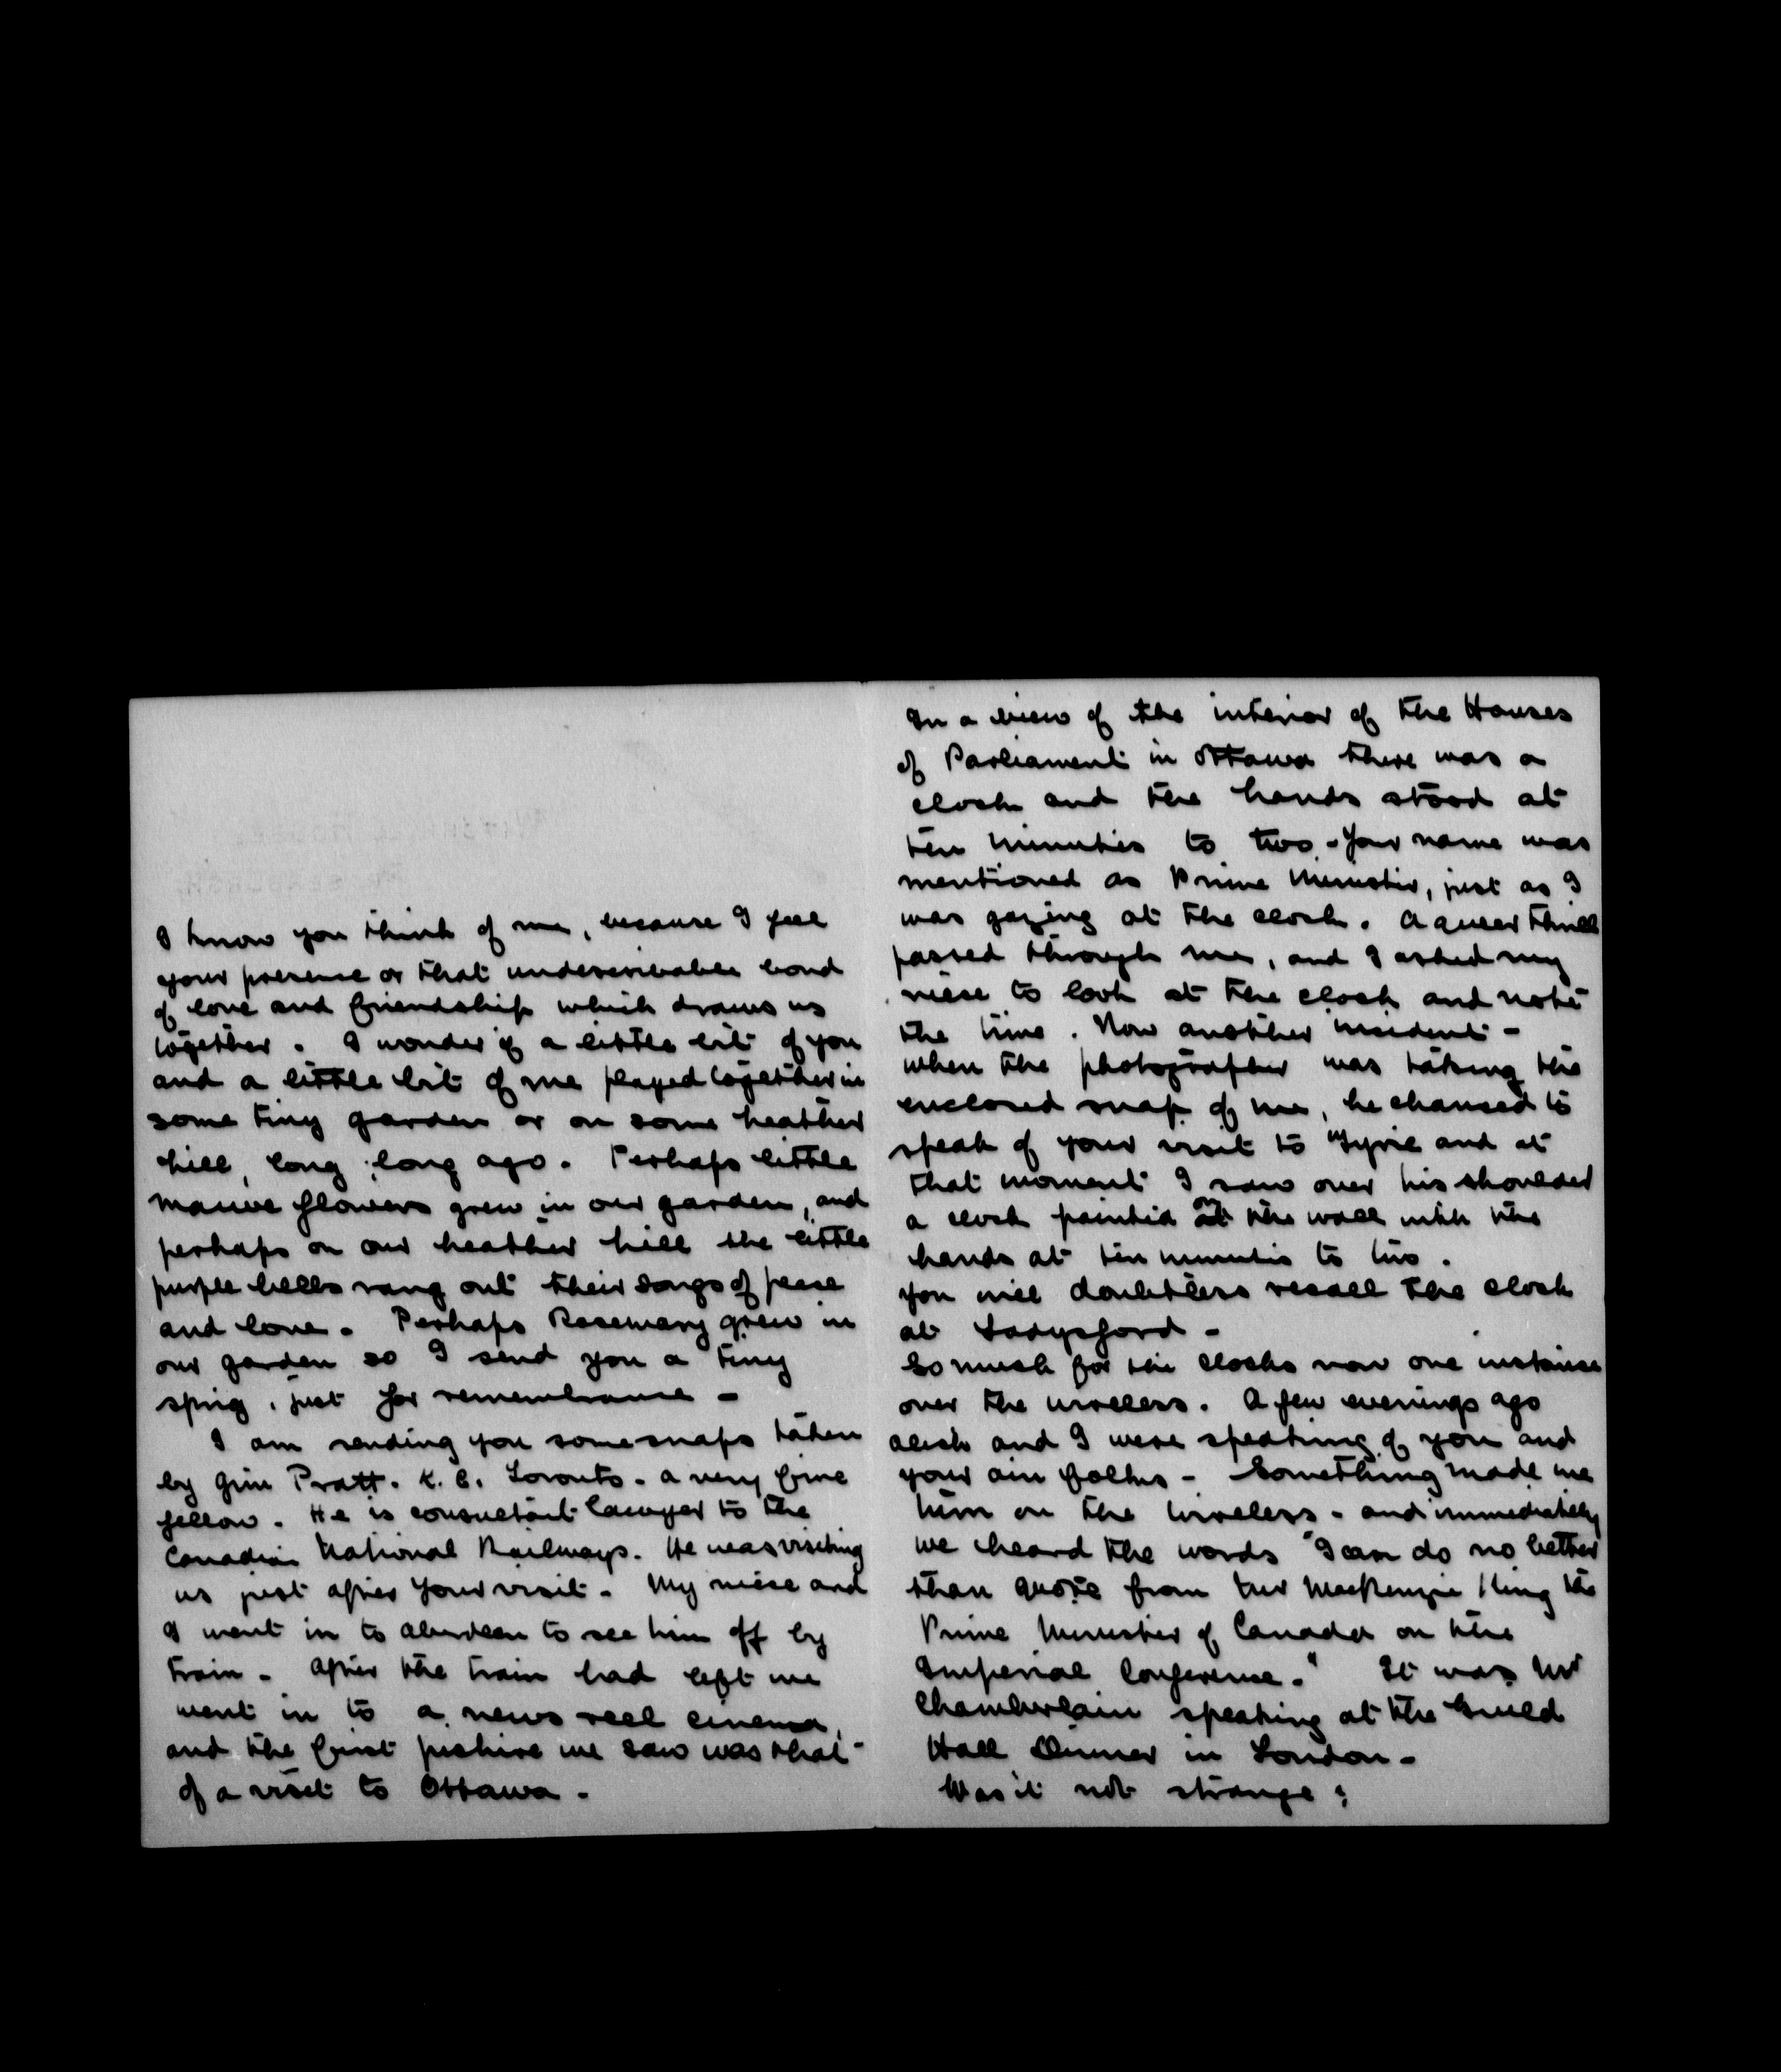 I know you think of me, because I feel
your presence or that undescribable bond
of love and friendship which draws us
together. I wonder if a little bit of you
and a little bit of me played together in
some tiny garden or on some heather
hill, long long ago. Perhaps little
mauve flowers grew in our garden, and
perhaps on our heather hill the little
purple bells rang out their songs of peace
and love. Perhaps Rosemary grew in
our garden so I send you a tiny
sprig, just for remembrance -
I am sending you some snaps taken
by Jim Pratt. K. C. Toronto - a very fine
fellow. He is consultant lawyer to the
Canadian National Railways. He was visiting
us just after your visit. My niece and
I went in to Aberdeen to see him off by
train - After the train had left we
went in to a news reel cinema,
and the first picture we saw was that
of a visit to Ottawa.
In a view of the interior of the Houses
of Parliament in Ottawa there was a
clock and the hands stood at
ten minutes to two - Your name was
mentioned as Prime Minister, just as I
was gazing at the clock. A queer thrill
passed through me, and I asked my
niece to look at the clock and note
the time. Now another incident -
when the photographer was taking the
enclosed snap of me, he chanced to
speak of your visit to Tyrie and at
that moment I saw over his shoulder
a clock painted on the wall with the
hands at ten minutes to two.
You will doubtless recall the clock
at Ladysford -
So much for the clocks now one instance
over the wireless. A few evenings ago
and I were speaking of you and
your ain folks - Something made me
turn on the wireless - and immediately
we heard the words "I can do no better
than quote from Mr MacKenzie King the
Prime Minister of Canada on the
Imperial Conference." It was Mr
Chamberlain speaking at the Guild
Hall Dinner in London -
Was it not strange?